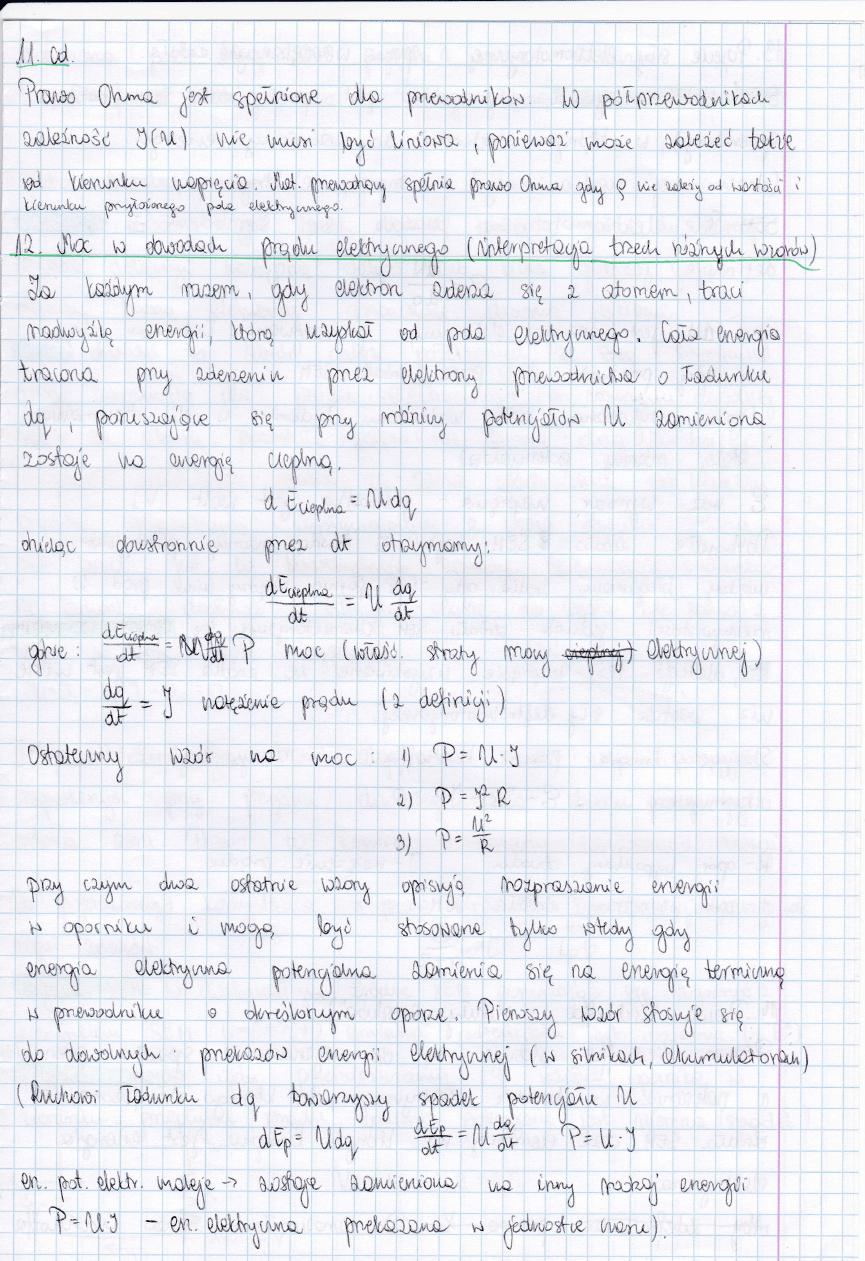 11. cd.
Prawo Ohma jest spełnione dla przewodników. W półprzewodnikach
zależność I(U) nie musi być liniowa, ponieważ może zależeć także
od kierunku napięcia. Mat. przewodzący spełnia prawo Ohma gdy ρ nie zależy od wartości i
kierunku przyłożonego pola elektrycznego.
12. Moc w obwodach prądu elektrycznego (interpretacja trzech różnych wzorów)
Za każdym razem, gdy elektron zderza się z atomem, traci
nadwyżkę energii, którą uzyskał od pola elektrycznego. Cała energia
tracona przy zderzeniu przez elektrony przewodnictwa o ładunku
dq, poruszające się przy różnicy potencjałów U zamieniona
zostaje na energię cieplną.
d Ecieplna = U dq
dzieląc dwustronnie przez dt otrzymamy:
dEcieplna/dt = U dq/dt
gdzie: dEcieplna/dt = P moc (właść. straty mocy elektrycznej)
dq/dt = I natężenie prądu (z definicji)
Ostateczny wzór na moc: 1) P = U·I
2) P = I² R
3) P = U²/R
przy czym dwa ostatnie wzory opisują rozpraszanie energii
w oporniku i mogą być stosowane tylko wtedy gdy
energia elektryczna potencjalna zamienia się na energię termiczną
w przewodniku o określonym oporze. Pierwszy wzór stosuje się
do dowolnych przekazów energii elektrycznej (w silnikach, akumulatorach)
(Ruchowi ładunku dq towarzyszy spadek potencjału U
dEp = U dq dEp/dt = U dq/dt P = U·I
en. pot. elektr. maleje → zostaje zamieniona na inny rodzaj energii
P = U·I – en. elektryczna przekazana w jednostce czasu).